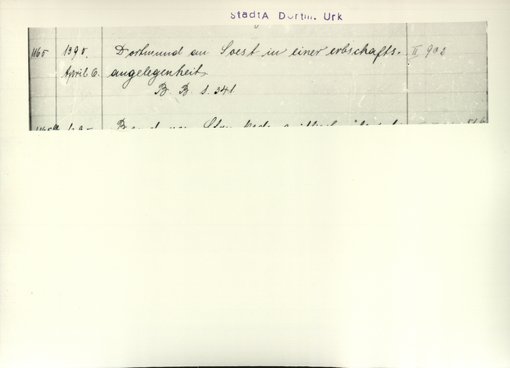 StadtA Dortm. Urk
1165 1395. Dortmund an Soest in einer erbschafts- II 902
April 6. angelegenheit.
B. B. s. 341